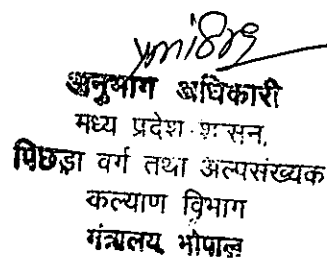 अनुभाग अधिकारी
मध्य प्रदेश शासन,
पिछड़ा वर्ग तथा अल्पसंख्यक
कल्याण विभाग
मंत्रालय भोपाल